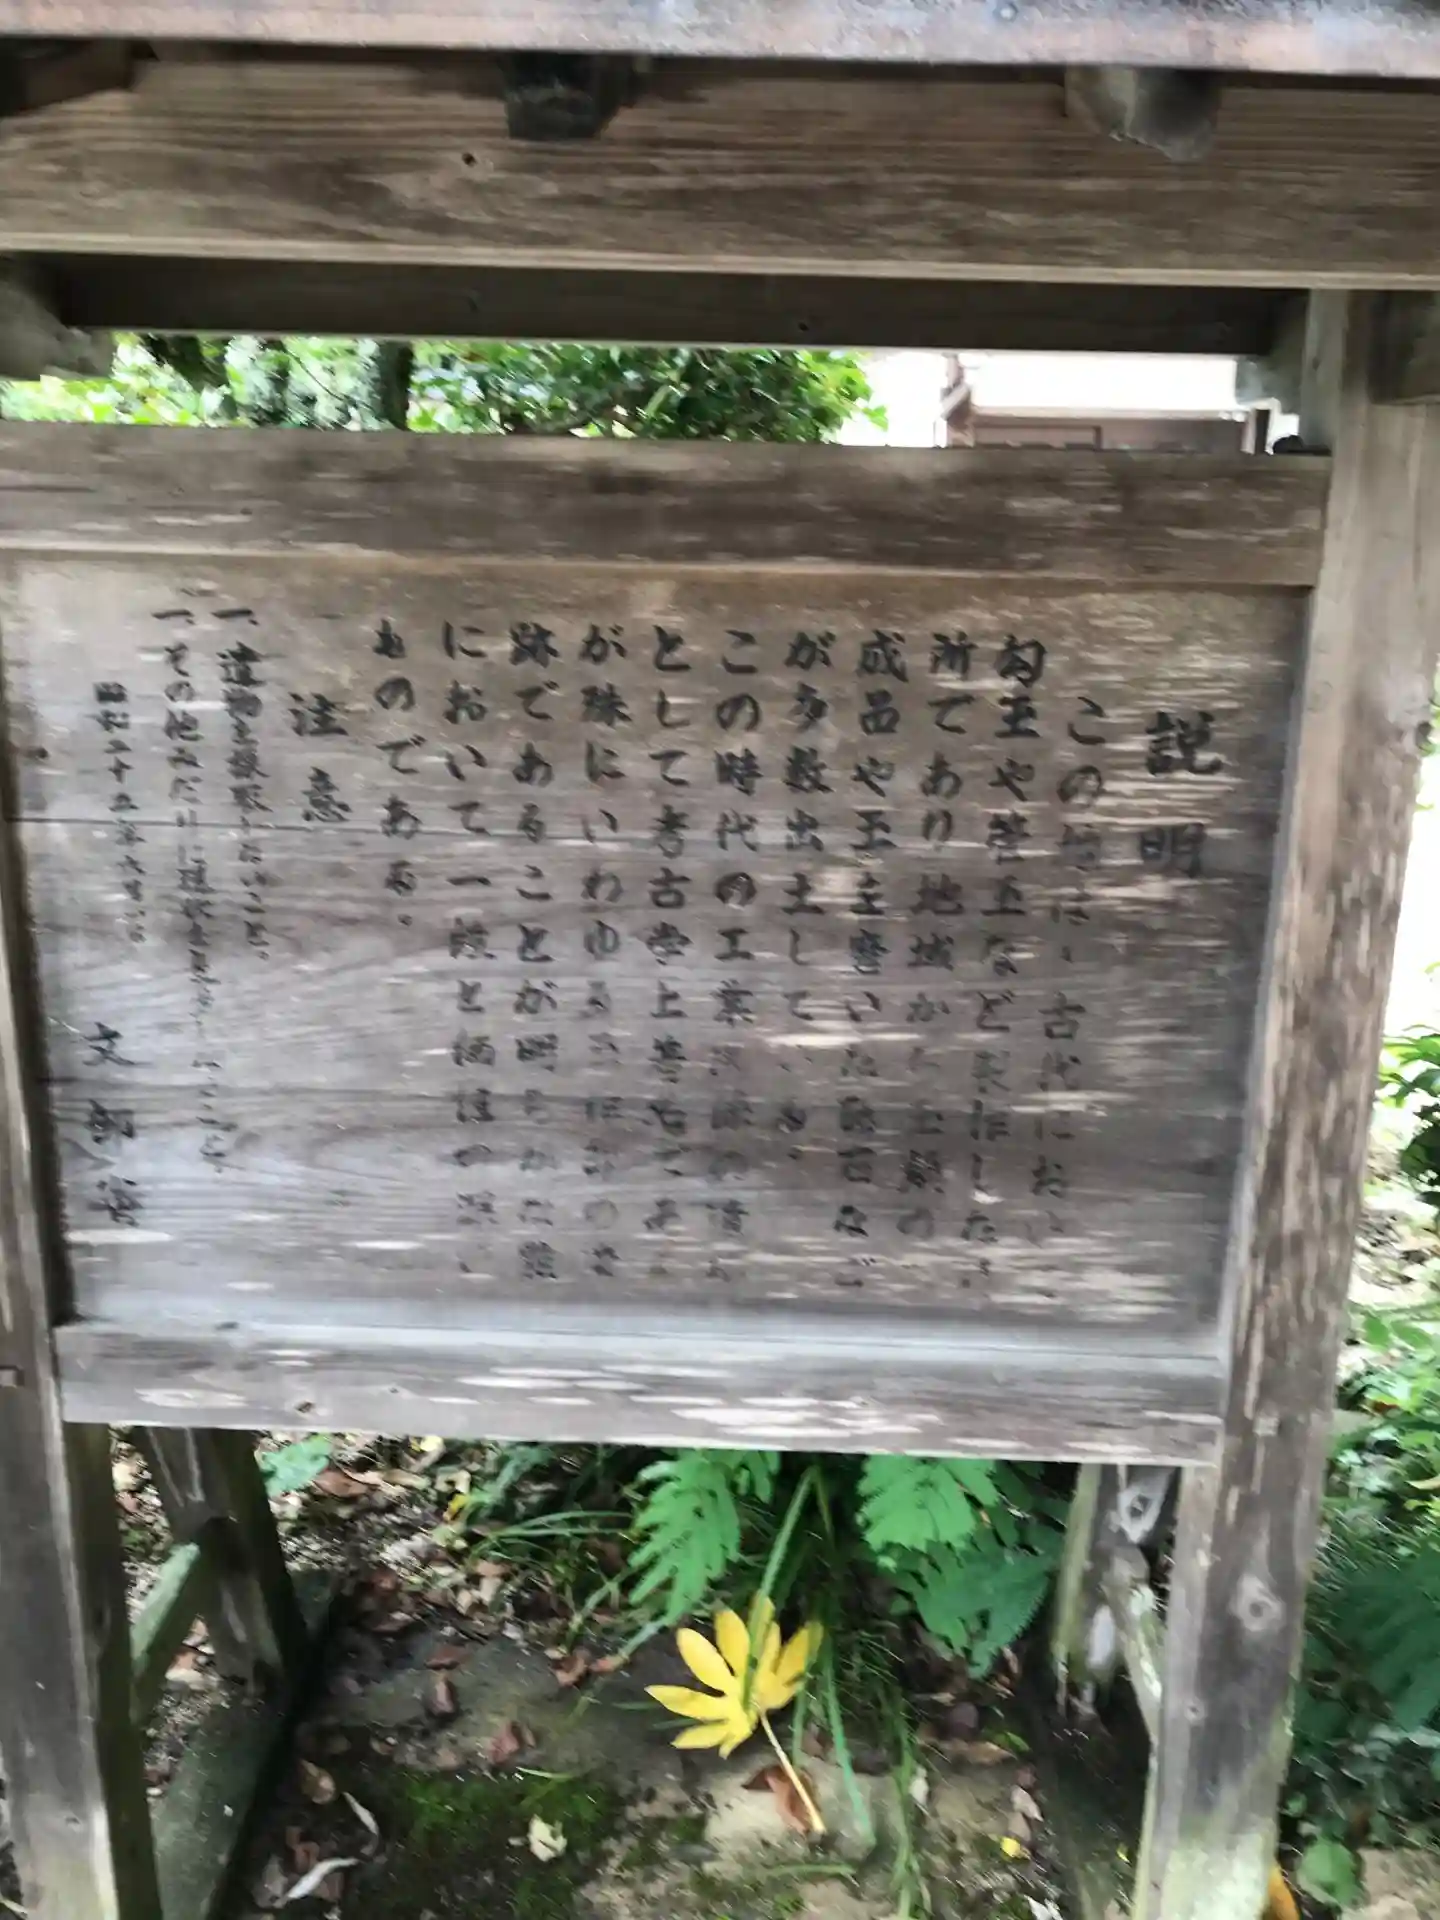 説明
この地は、古代におい
勾玉や管玉など製作した
所であり地域から玉類の
成品や玉を磨いた砥石など
が多数出土している。
この時代の工業
として考古学上著名であ
が殊にいわゆる玉作部の
跡であることが明らかな
において一段と価値の深い
ものである。
注意
一、遺物を採取しないこと。
一、その他みだりに現状を変更しないこと。
昭和二十五年六月
文部省